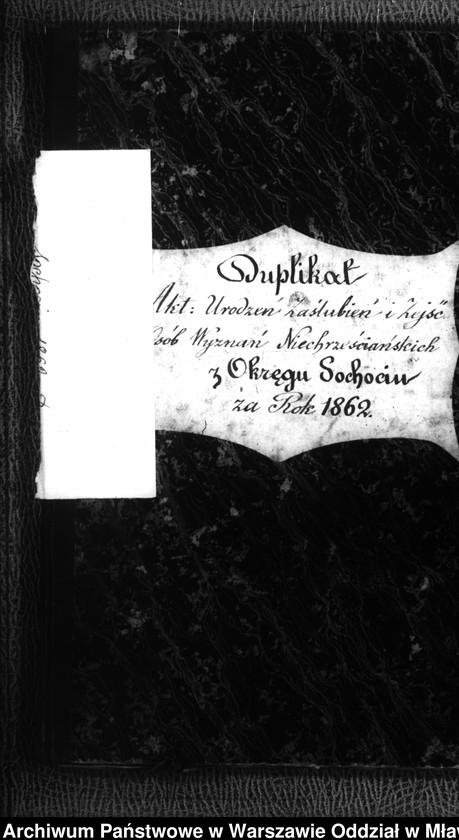 Duplikat
Akt: Urodzeń Zaślubień i Zejść
Osób Wyznań Niechrześciańskich
z Okręgu Sochocin
za Rok 1862.
Archiwum Państwowe w Warszawie Oddział w Mła